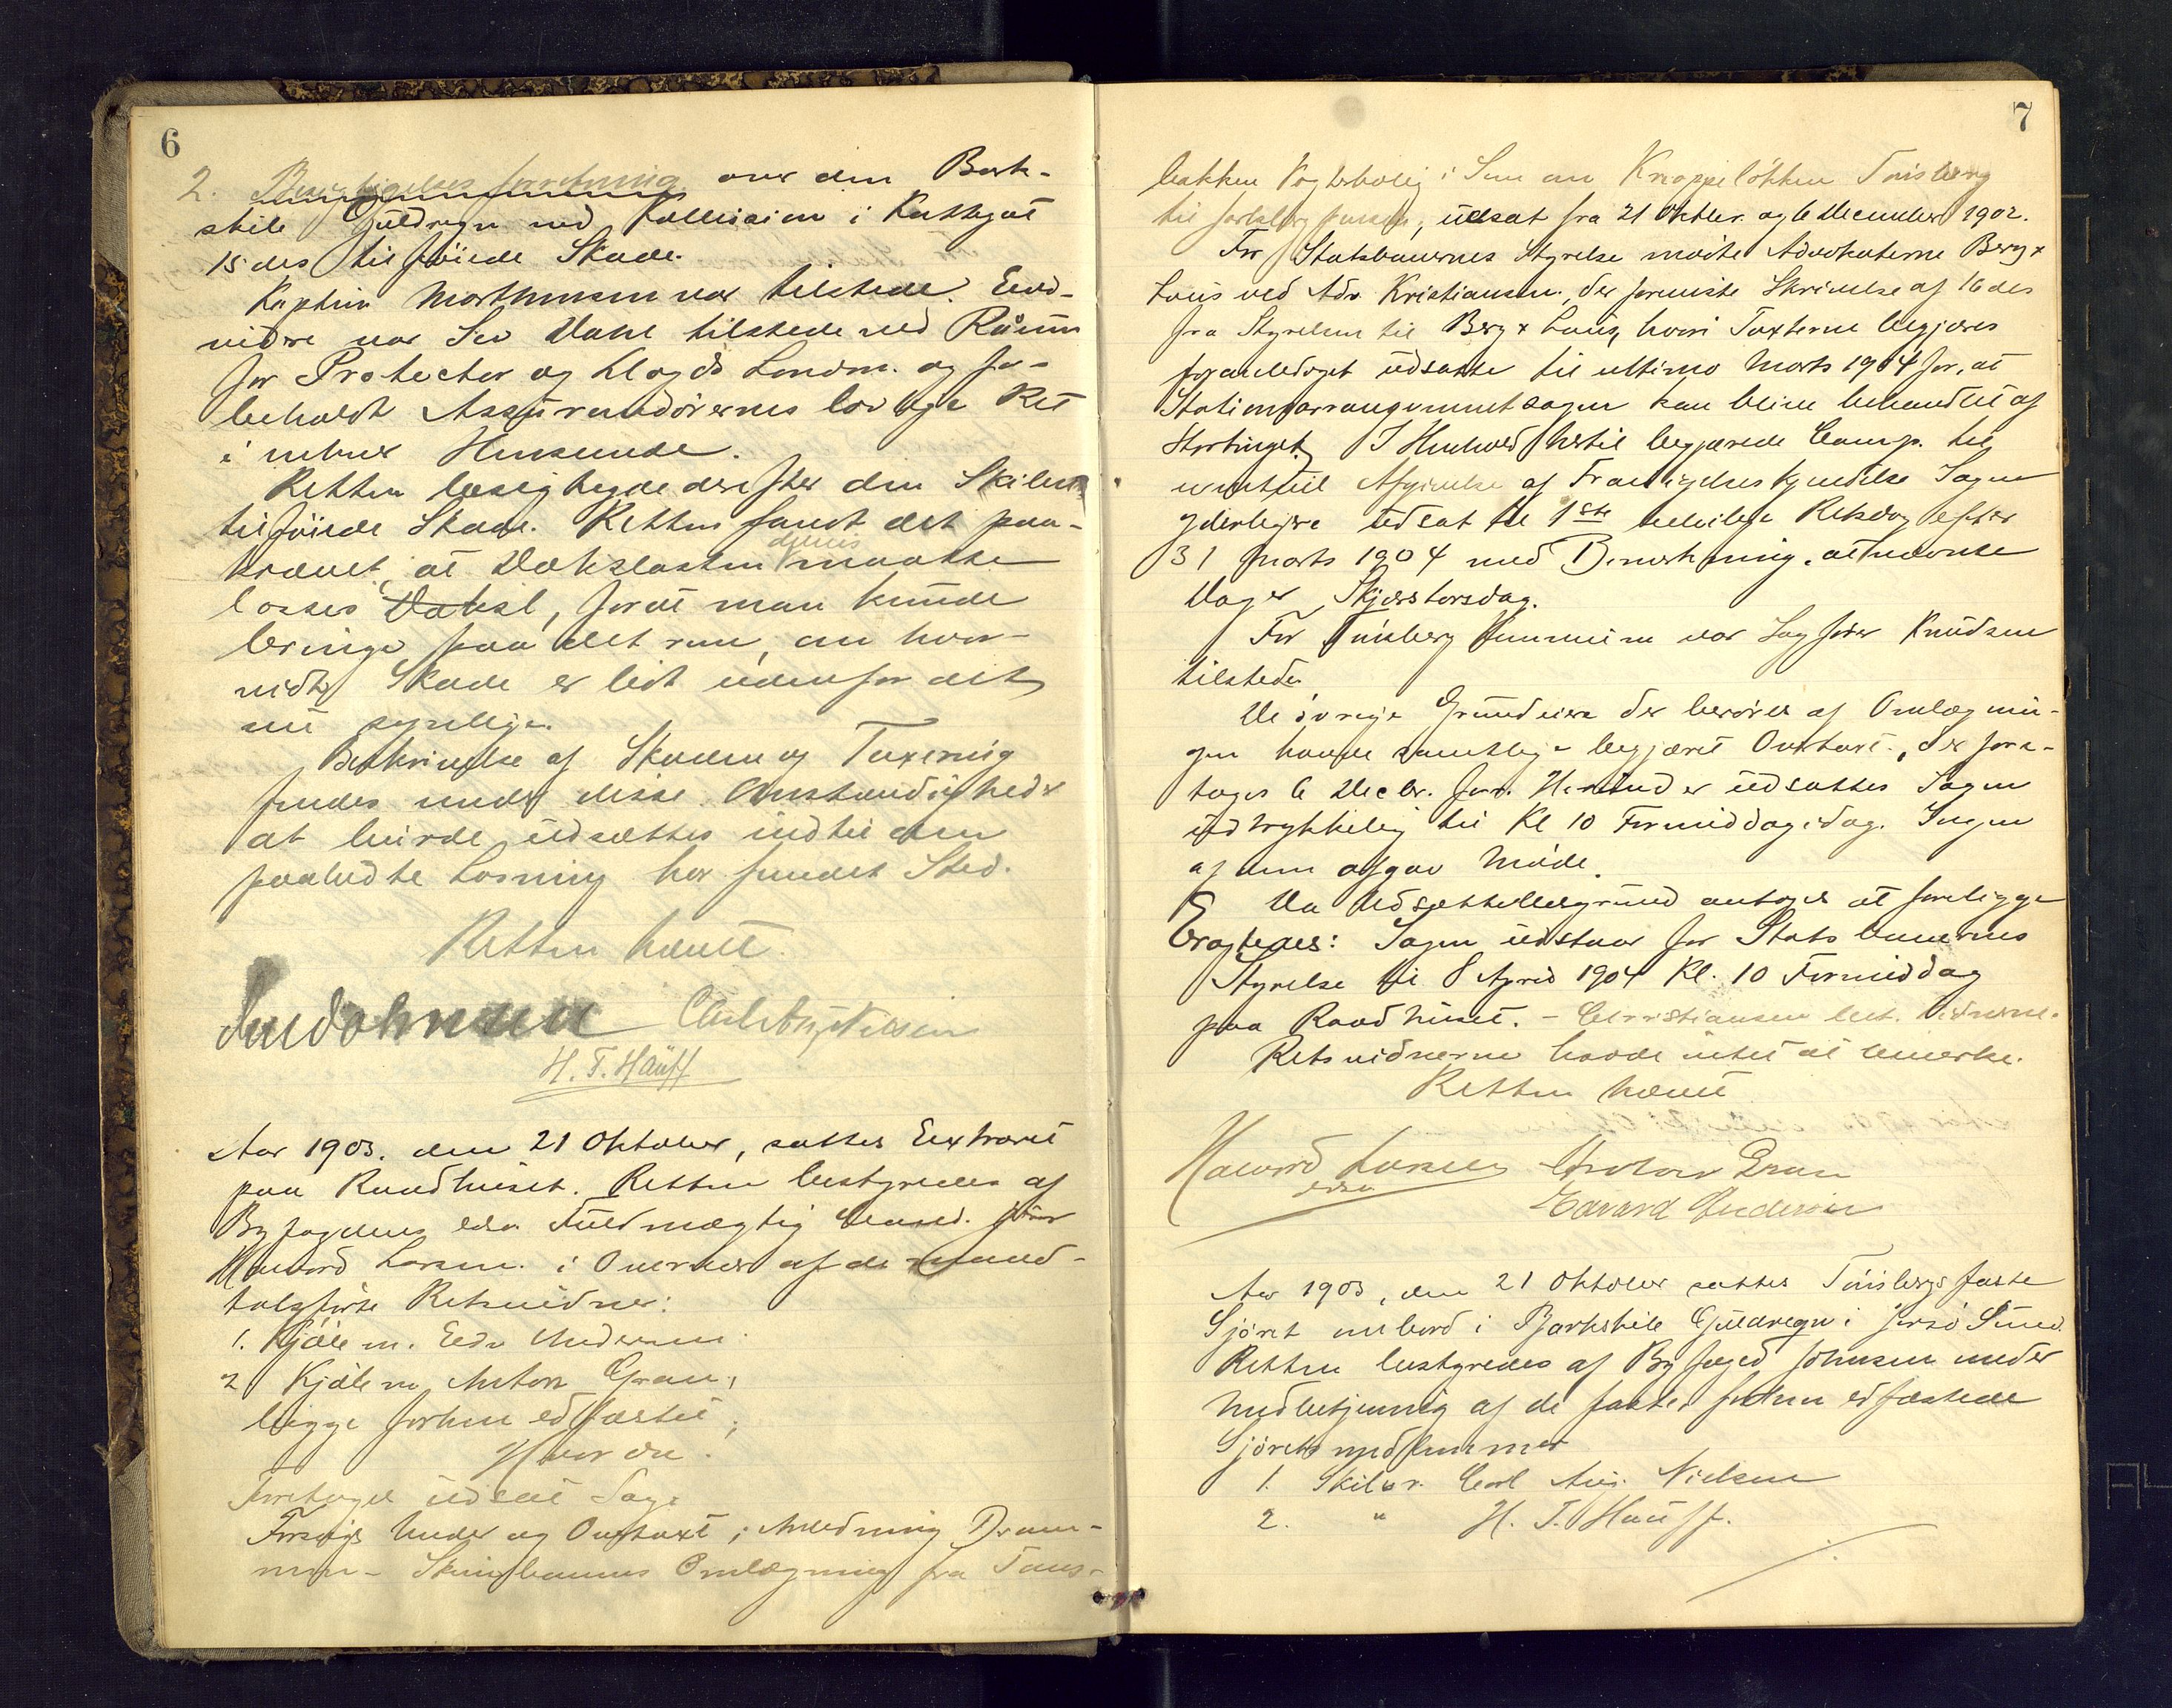 6
2. Besigtigelsesforretning over den Bark-
skib Guldregn ved Kollision i Kattegat
15 des tilföiede Skade.
Kaptein Morthensen var tilstede. End-
videre var Sev Dahl tilstede ved
for Protector og Lloyds London. og for-
beholdt Assurandörernes lovlige Ret
i enhver Henseende.
Retten besigtigede derefter den Skibet
tilföiede Skade. Retten fandt det paa-
krævet, at Dækslasten delvis maatte
losses, for at man kunde
bringe paa det rene, om hvor-
vidt Skade er lidt udenfor det
nu synlige.
Beskrivelse af Skaden og Taxering
fandtes under disse Omstændigheder
at burde udsættes indtil den
paabudte Losning har fundet Sted.
Retten hævet.
Carl Aug Nielsen
H. T. Hauff
Aar 1903. den 21 Oktober, sattes Extraret
paa Raadhuset. Retten bestyredes af
Byfogdens edsv. Fuldmægtig Cand. jur
Haavard Larsen. i Overvær af de mand-
talsförte Retsvidner:
1. Kjöbm. Edv Andersen.
2 Kjöbm Anton Gran,
begge forhen edfæstet;
Hvorda.
Foretages udsat Sag:
Forsögs Under og Overtaxt i Anledning Dram-
men - Skiensbanens Omlægning fra Töns-
7
bakken Vogterbolig i Sem om Knappelökken Tönsberg
til Jarlsberg, udsat fra 21 Oktbr. og 6 December 1902.
For Statsbanernes Styrelse mödte Advokaterne Berg &
Lous ved Adv. Kristiansen. der fremlagte Skrivelse af 16 des
fra Styrelsen til Berg & Lous, hvori Taxterne begjæres
foranlediget udsatte til ultimo Marts 1904 for, at
Stationsarrangementsagen kan blive behandlet af
Stortinget. I Henhold hertil begjærede Comp. til
eventuel Afgivelse af Fravigelseskjendelse Sagen
yderligere udsat til 1ste beleilige Retsdag efter
31 Marts 1904 med Bemærkning, at nævnte
Dag er Skjærtorsdag.
For Tönsberg Kommune var Sagförer Knudsen
tilstede.
De övrige Grundeiere der beröres af Omlægnin-
gen havde samtlige begjæret Overtaxt, der fore-
tages 6 Decbr. udsattes Sagen
udtrykkelig til Kl 10 Formiddag idag. Ingen
af dem afgav Möde.
Da Udsættelsesgrund antages at foreligge
Eragtedes: Sagen udstaar for Statsbanernes
Styrelse til 8 April 1904 Kl. 10 Formiddag
paa Raadhuset. - Christiansen bet. Vidnerne.
Retsvidnerne havde intet at bemerke.
Retten hævet
Haavard Larsen Anton Gran
edsv Edvard Andersen
Aar 1903, den 21 Oktober sattes Tönsbergs faste
Sjöret ombord i Barkskib Guldregn i Jersö Sund.
Retten bestyredes af Byfoged Johnsen under
Medbetjening af de faste, forhen edfæstede
Sjöretsmedlemmer
1. Skibsr. Carl Aug. Nielsen
2. " H. T. Hauff.